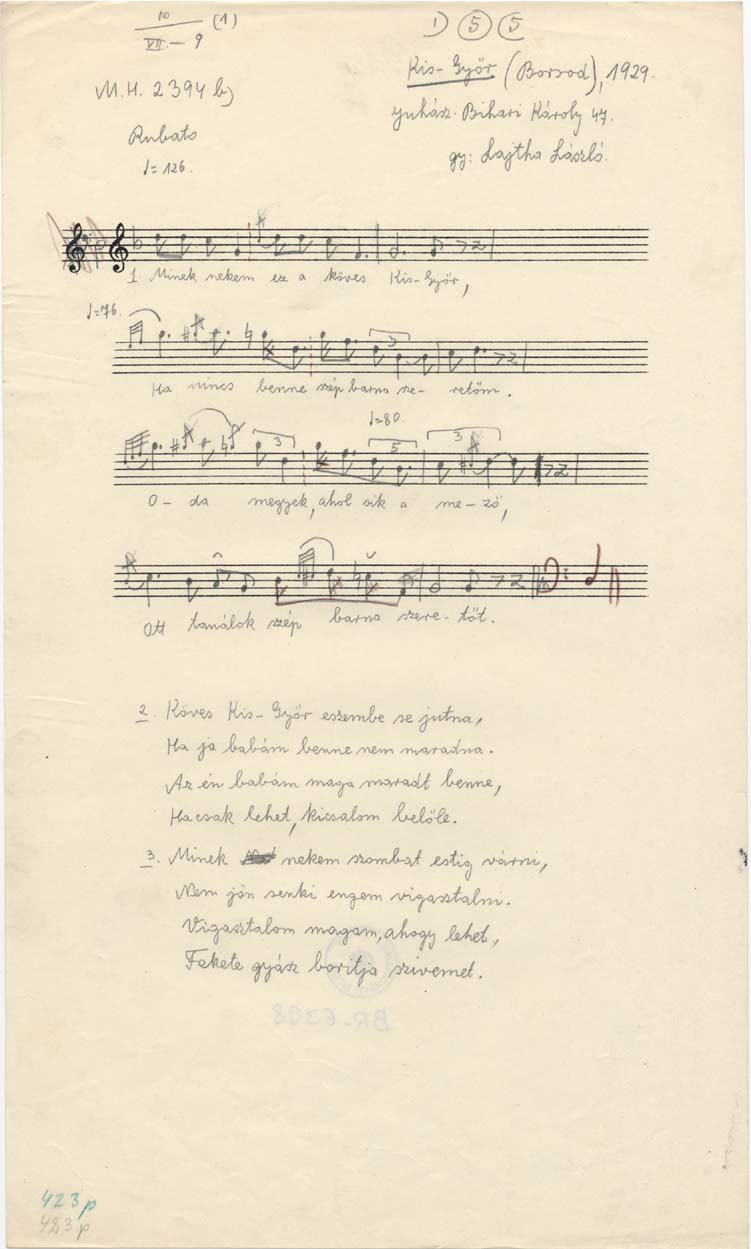 10 (1)
VII. — 9
1) 5 5
Kis-Győr (Borsod), 1929.
M.H. 2394 b)
Juhász Bihari Károly 47.
Rubato
gy: Lajtha László.
♩= 126.
1. Minek nekem ez a köves Kis-Győr,
♩=76.
3
Ha nincs benne szép barna sze- retőm.
♩=80.
3 5 3
O- da megyek, ahol sik a me- ző,
Ott tanálok szép barna szere- tőt.
2. Köves Kis-Győr eszembe se jutna,
Ha ja babám benne nem maradna.
Az én babám maga maradt benne,
Ha csak lehet, kicsalom belőle.
3. Minek nekem szombat estig várni,
Nem jön senki engem vigasztalni.
Vigasztalom magam, ahogy lehet,
Fekete gyász boritja szivemet.
BR-6398
423 p
423 p